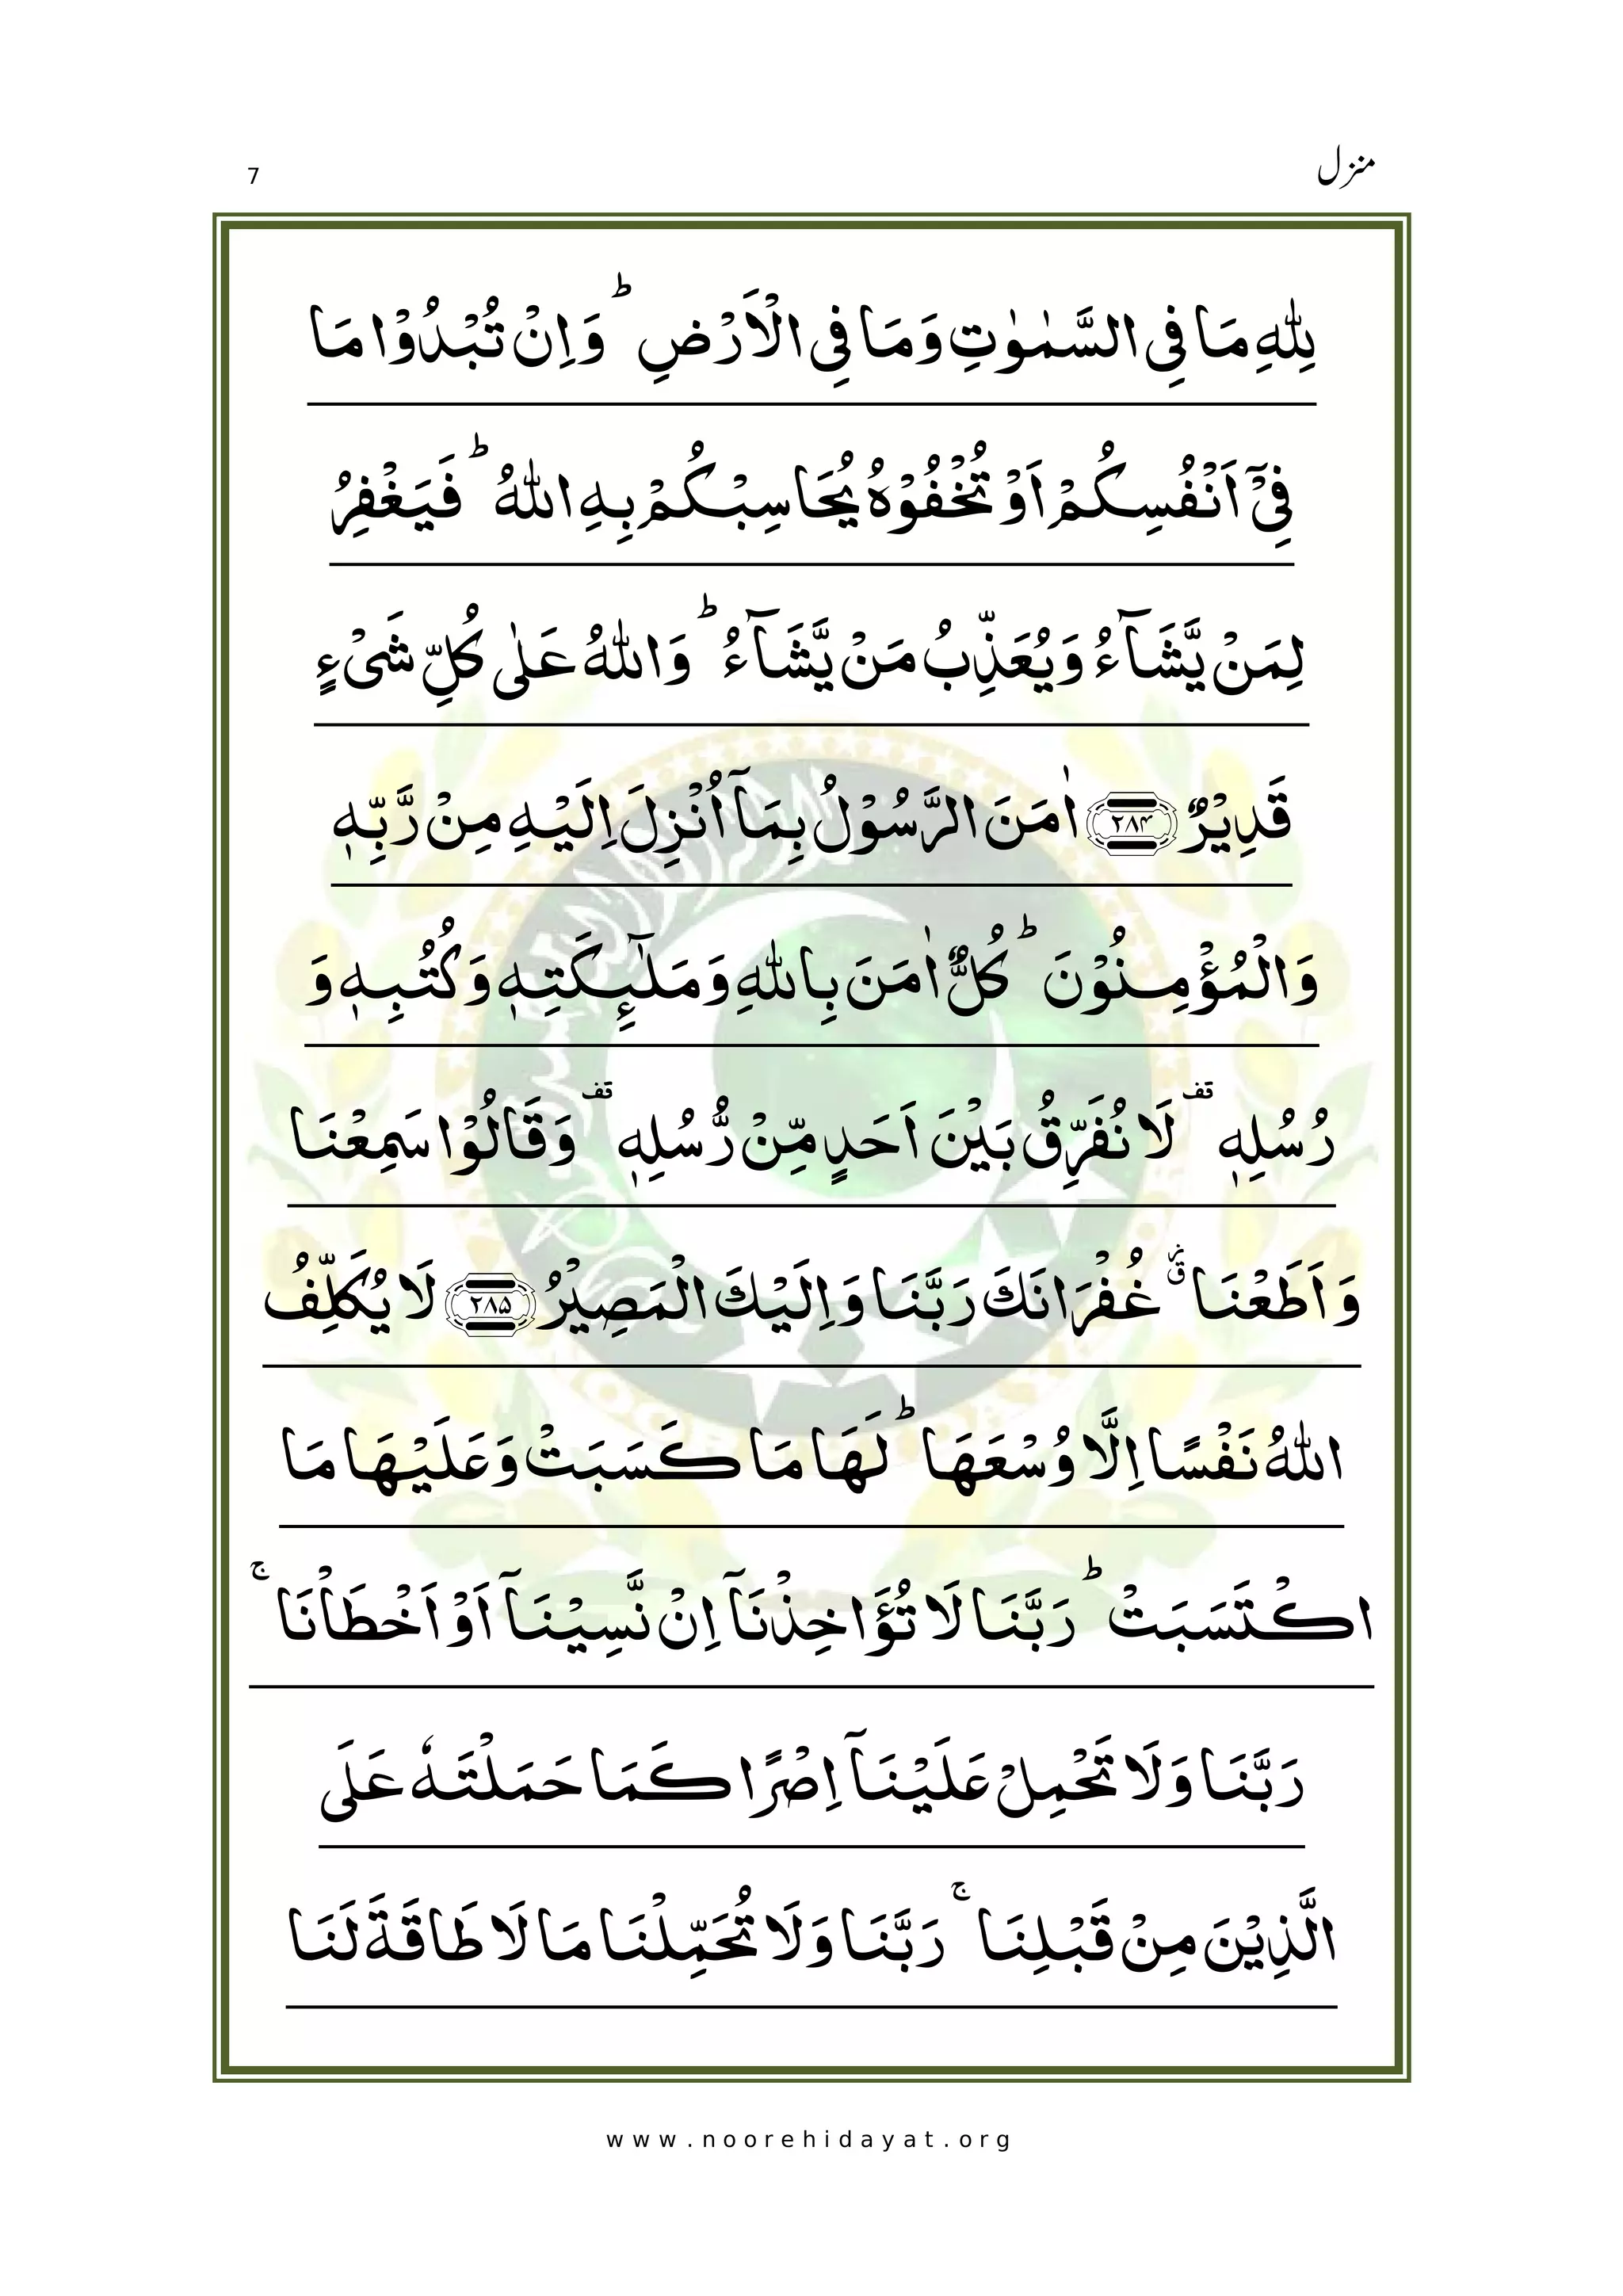 منزل
7
لِلّٰهِ مَا فِی السَّمٰوٰتِ وَمَا فِی الْاَرْضِ ؕ وَاِنْ تُبْدُوْا مَا
فِیْۤ اَنْفُسِكُمْ اَوْ تُخْفُوْهُ یُحَاسِبْكُمْ بِهِ اللّٰهُ ؕ فَیَغْفِرُ
لِمَنْ یَّشَآءُ وَیُعَذِّبُ مَنْ یَّشَآءُ ؕ وَاللّٰهُ عَلٰی كُلِّ شَیْءٍ
قَدِیْرٌ ﴿۲۸۴﴾ اٰمَنَ الرَّسُوْلُ بِمَاۤ اُنْزِلَ اِلَیْهِ مِنْ رَّبِّهٖ
وَالْمُؤْمِنُوْنَ ؕ كُلٌّ اٰمَنَ بِاللّٰهِ وَمَلٰٓىِٕكَتِهٖ وَكُتُبِهٖ وَ
رُسُلِهٖ قف لَا نُفَرِّقُ بَیْنَ اَحَدٍ مِّنْ رُّسُلِهٖ قف وَقَالُوْا سَمِعْنَا
وَاَطَعْنَا ٘ۗ غُفْرَانَكَ رَبَّنَا وَاِلَیْكَ الْمَصِیْرُ ﴿۲۸۵﴾ لَا یُكَلِّفُ
اللّٰهُ نَفْسًا اِلَّا وُسْعَهَا ؕ لَهَا مَا كَسَبَتْ وَعَلَیْهَا مَا
اكْتَسَبَتْ ؕ رَبَّنَا لَا تُؤَاخِذْنَاۤ اِنْ نَّسِیْنَاۤ اَوْ اَخْطَاْنَا ۚ
رَبَّنَا وَلَا تَحْمِلْ عَلَیْنَاۤ اِصْرًا كَمَا حَمَلْتَهٗ عَلَی
الَّذِیْنَ مِنْ قَبْلِنَا ۚ رَبَّنَا وَلَا تُحَمِّلْنَا مَا لَا طَاقَةَ لَنَا
www.noorehidayat.org